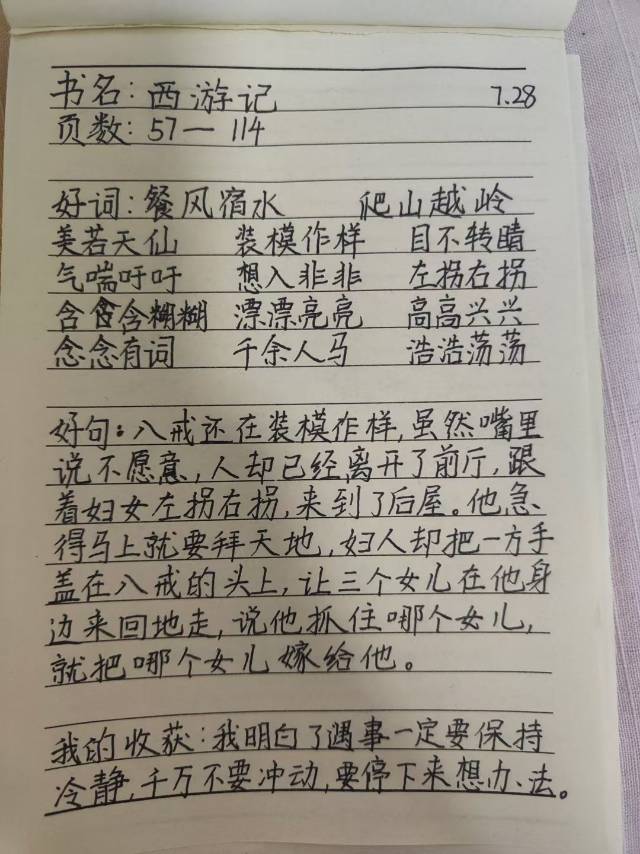 书名：西游记 7.28
页数：57—114
好词：餐风宿水 爬山越岭
美若天仙 装模作样 目不转睛
气喘吁吁 想入非非 左拐右拐
含含含糊糊 漂漂亮亮 高高兴兴
念念有词 千余人马 浩浩荡荡
好句：八戒还在装模作样，虽然嘴里
说不愿意，人却已经离开了前厅，跟
着妇女左拐右拐，来到了后屋。他急
得马上就要拜天地，妇人却把一方手
盖在八戒的头上，让三个女儿在他身
边来回地走，说他抓住哪个女儿，
就把哪个女儿嫁给他。
我的收获：我明白了遇事一定要保持
冷静，千万不要冲动，要停下来想办法。